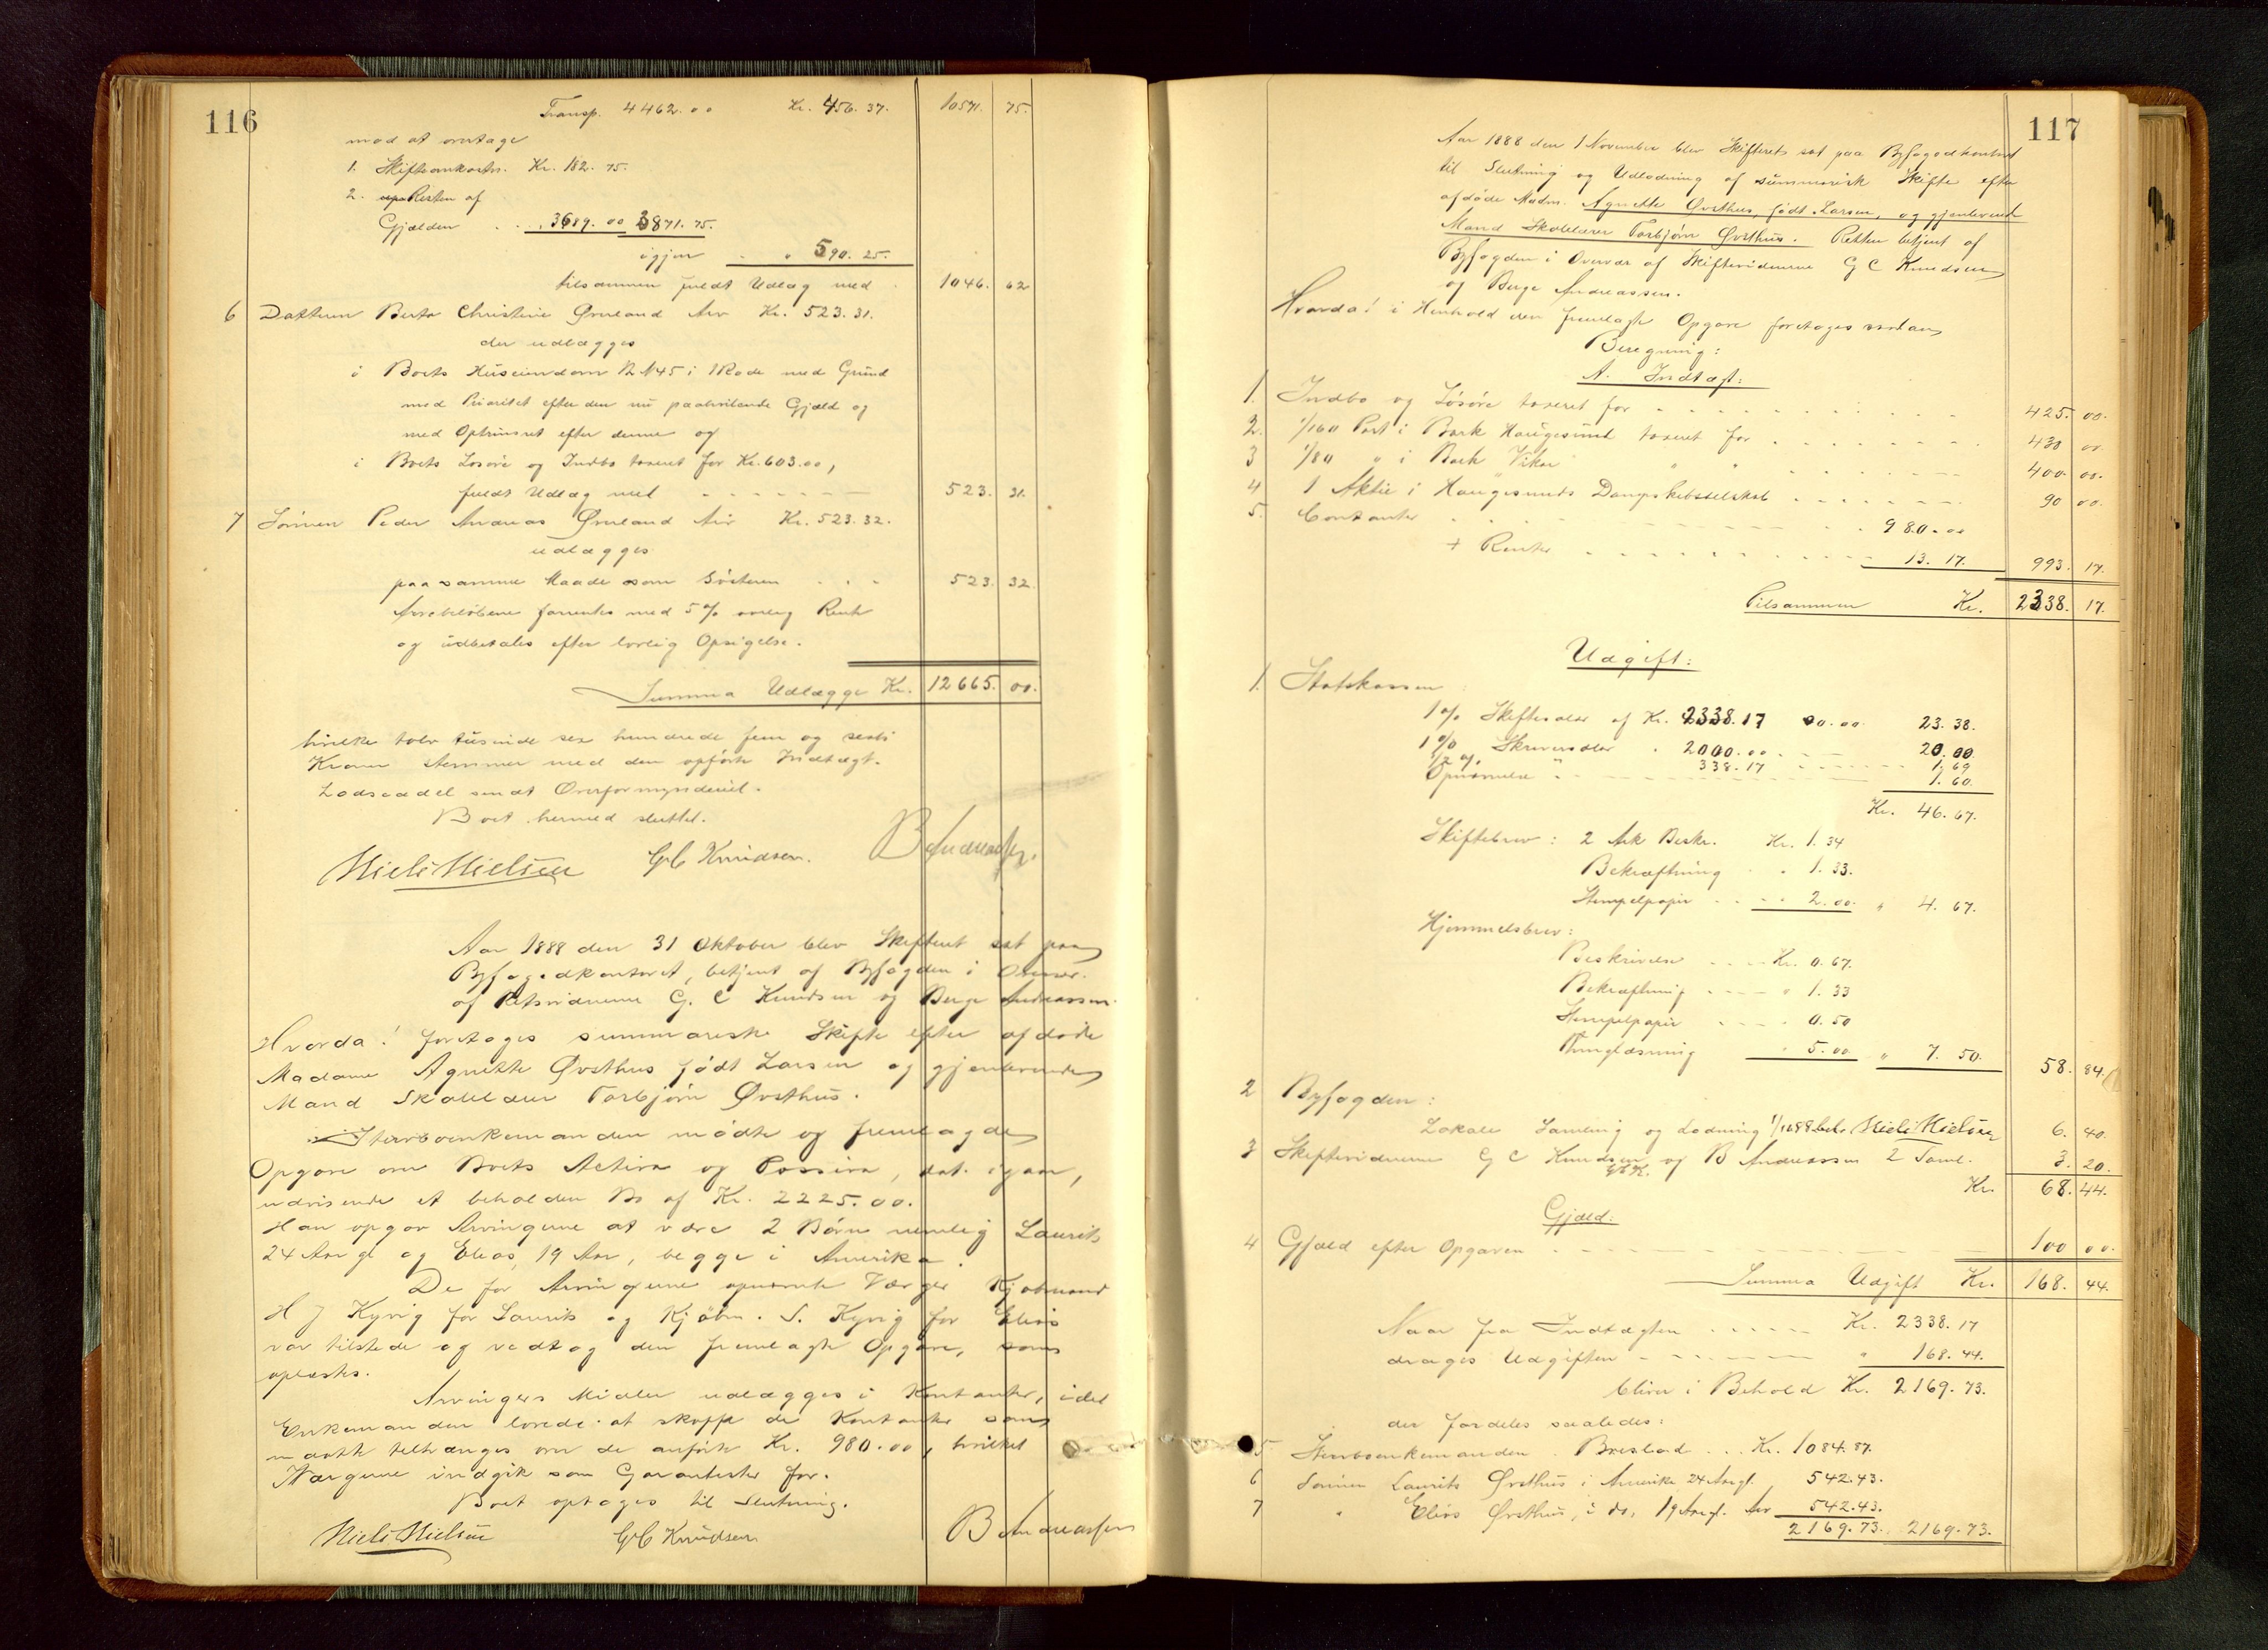 116
Transp. 4462.00 Kr. 456.37. 10571. 75.
mod at overtage
1. Skifteomkostn. Kr. 182.75.
2. Resten af
Gjælden . . . 3689.00 3871.75.
igjen . " 590.25.
tilsammen fuldt Udlæg med . 1046. 62
6 Datteren Berta Christine Øverland Arv Kr. 523.31.
der udlægges
i Boets Huseiendom N 45 i 1 Rode med Grund
med Prioritet efter den nu paahvilende Gjæld og
med Optrinsret efter denne og
i Boets Løsøre og Indbo taxeret for Kr. 603.00,
fuldt Udlæg med . . . . 523. 31.
7 Sønnen Peder Andreas Øverland Arv Kr. 523.32.
udlægges
paa samme Maade som Søsteren . . . 523. 32.
Arvebeløbene forrentes med 5% aarlig Rente
og udbetales efter lovlig Opsigelse.
Summa Udlægge Kr. 12665. 00.
hvilke tolv tusinde sex hundrede fem og sexti
Kroner stemmer med den opførte Indtægt.
Lodseddel sendt Overformynderiet.
Boet hermed sluttet.
Niels Nielsen G C Knudsen. B Andreassen.
Aar 1888 den 31 Oktober blev Skifteret sat paa
Byfogedkontoret, betjent af Byfogden i Overvær
af Retsvidnerne G. C Knudsen og Berge Andreassen.
Hvorda! foretoges summariske Skifte efter afdøde
Madame Agnethe Øvsthus født Larsen og gjenlevende
Mand Skolelærer Torbjørn Øvsthus.
Stervboenkemanden mødte og fremlagde
Opgave over Boets Activa og Passiva, dat. igaar,
udvisende et beholden Bo af Kr. 2225.00.
Han opgav Arvingerne at være 2 Børn nemlig Laurits
24 Aar gl og Elias, 19 Aar, begge i Amerika.
De for Arvingerne opnævnte Værger Kjøbmand
H J Kyvig for Laurits og Kjøbm. S. Kyvig for Elias
var tilstede og vedtog den fremlagte Opgave, som
oplæstes.
Arvingers Midler udlægges i Kontanter, idet
Enkemanden lovede at skaffe de Kontanter som
maatte tiltrænges over de anførte Kr. 980.00, hvilket
Værgerne indgik som Garantister for.
Boet optages til Slutning.
Niels Nielsen G C Knudsen B Andreassen
117
Aar 1888 den 1 November blev Skifteret sat paa Byfogedkontoret
til Slutning og Udlodning af summarisk Skifte efter
afdøde Madm. Agnethe Øvsthus, født Larsen, og gjenlevende
Mand Skolelærer Torbjørn Øvsthus. Retten betjent af
Byfogden i Overvær af Skiftevidnerne G C Knudsen
og Berge Andreassen.
Hvorda! i Henhold den fremlagte Opgave foretoges saadan
Beregning:
A. Indtægt:
1. Indbo og Løsøre taxeret for . . . . 425. 00.
2. 1/160 Part i Bark Haugesund taxeret for . . . . 430 00.
3 1/80 " i Bark Vikar " " . . . . 400. 00.
4 1 Aktie i Haugesunds Dampskibsselskab . . . . 90 00.
5. Contanter . . . . 980.00
+ Renter . . . . 13.17. 993. 17.
Tilsammen Kr. 2338. 17.
Udgift:
1. Statskassen
1% Skifteafgift af Kr. 2338.17 23.38.
1% Skriversalær " 2000.00 . . 20.00
1/2 % " 338.17 . . . 1.69
Opnævnelse . . . . 1.60.
Kr. 46.67.
Skiftebrev: 2 Ark Beskr. Kr. 1.34
Bekræftning . " 1.33.
Stempelpapir . . . 2.00. " 4.67.
Hjemmelsbrev:
Beskrivelse . . . Kr. 0.67.
Bekræftning . . . " 1.33
Stempelpapir . . . 0.50
Thinglæsning " 5.00 " 7.50. 58. 84.
2 Byfogden:
Lokale Samling og Lodning 1/11 88 bet. Niels Nielsen 6. 40.
3 Skiftevidnerne G C Knudsen og B Andreassen 2 Saml. 3. 20.
G C K.
Kr. 68. 44.
Gjæld:
4 Gjæld efter Opgaven . . . . 100 00.
Summa Udgift Kr. 168. 44.
Naar fra Indtægten . . . . Kr. 2338.17
drages Udgiften . . . . " 168.44.
bliver i Behold Kr. 2169.73.
der fordeles saaledes:
5 Stervboenkemanden Boeslod . . . Kr. 1084.87.
6 Sønnen Laurits Øvsthus i Amerika 24 Aar gl. 542.43.
7 " Elias Øvsthus, i do, 19 Aar gl. Arv 542.43.
2169.73. 2169.73.